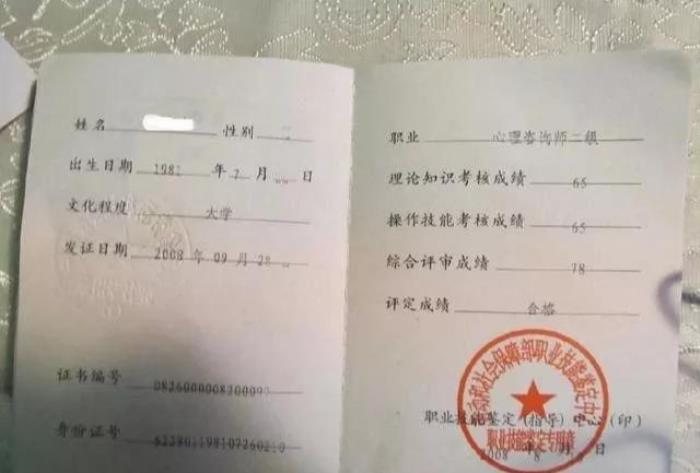 姓名 性别
出生日期 1981 年 7 月 日
文化程度 大学
发证日期 2008 年 09 月 28 日
证书编号
身份证号
职业 心理咨询师二级
理论知识考核成绩 65
操作技能考核成绩 65
综合评审成绩 78
评定成绩 合格
职业技能鉴定(指导)中心(印)
2008 年 8 月 日
社会保障部职业技能鉴定中
职业技能鉴定专用章